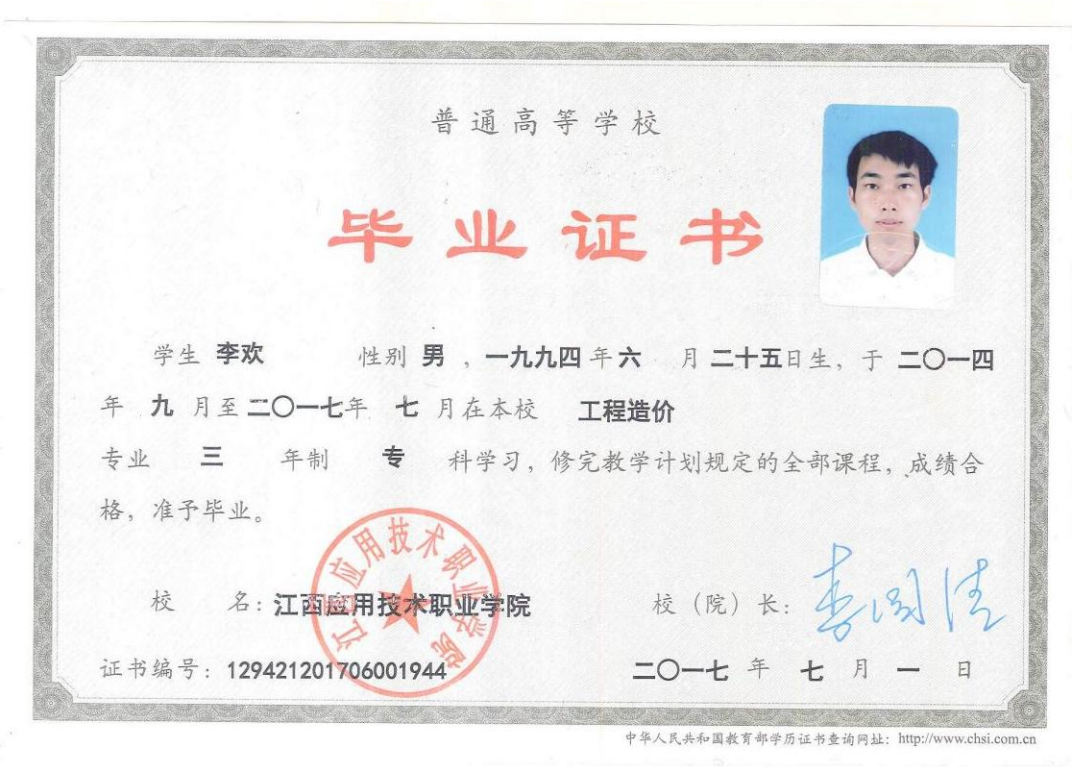 普通高等学校
毕业证书
学生 李欢 性别 男 ，一九九四 年 六 月 二十五日生，于 二〇一四
年 九 月至 二〇一七年 七 月在本校 工程造价
专业 三 年制 专 科学习，修完教学计划规定的全部课程，成绩合
格，准予毕业。
江西应用技术职业学院
校 名：江西应用技术职业学院 校（院）长：
证书编号：129421201706001944 二〇一七 年 七 月 一 日
中华人民共和国教育部学历证书查询网址：http://www.chsi.com.cn